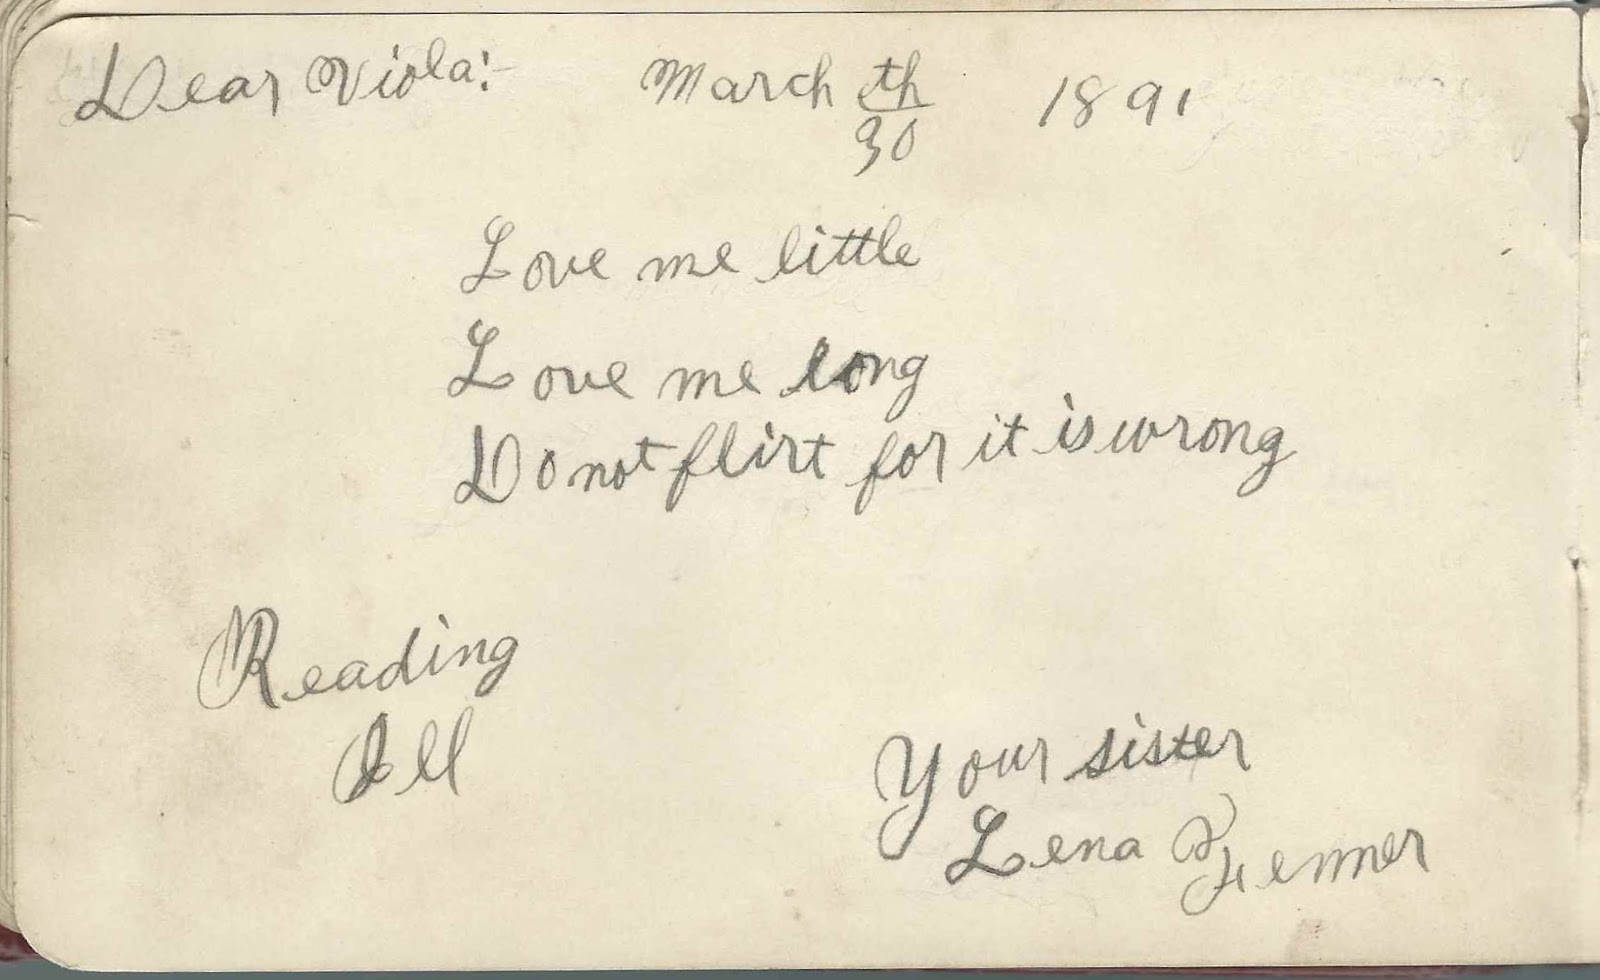 Dear Viola:- March 30th 1891
Love me little
Love me long
Do not flirt for it is wrong
Reading
Ill
Your sister
Lena Fenner